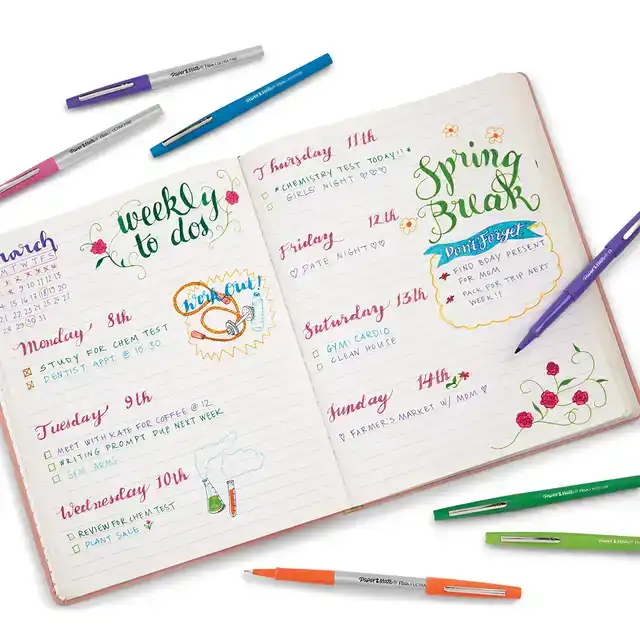 weekly
to dos
M T W T F S
Monday 8th
STUDY FOR CHEM TEST
DENTIST APPT. @ 10:30
work out!
Tuesday 9th
MEET WITH KATE FOR COFFEE @ 12
WRITING PROMPT DUE NEXT WEEK
GYM: ARMS
Wednesday 10th
REVIEW FOR CHEM TEST
PLANT SALE
Thursday 11th
*CHEMISTRY TEST TODAY!!*
GIRLS NIGHT ♡♡♡
Friday 12th
♡ DATE NIGHT ♡♡
Saturday 13th
GYM: CARDIO
CLEAN HOUSE
Sunday 14th
♡ FARMER'S MARKET W/ MOM ♡
Spring
Break
Don't Forget
FIND BDAY PRESENT
FOR MOM
PACK FOR TRIP NEXT
WEEK!!
Paper Mate
Paper Mate
Paper Mate
Paper Mate
Paper Mate
Paper Mate